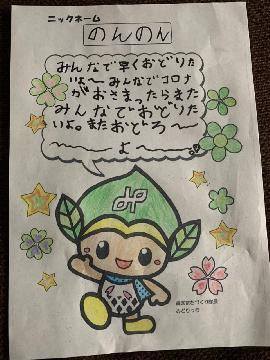 ニックネーム
のんのん
みんなで早くおどりた
いよ〜みんなでコロナ
がおさまったらまた
みんなでおどりた
いよ。またおどろ〜
〜よ〜